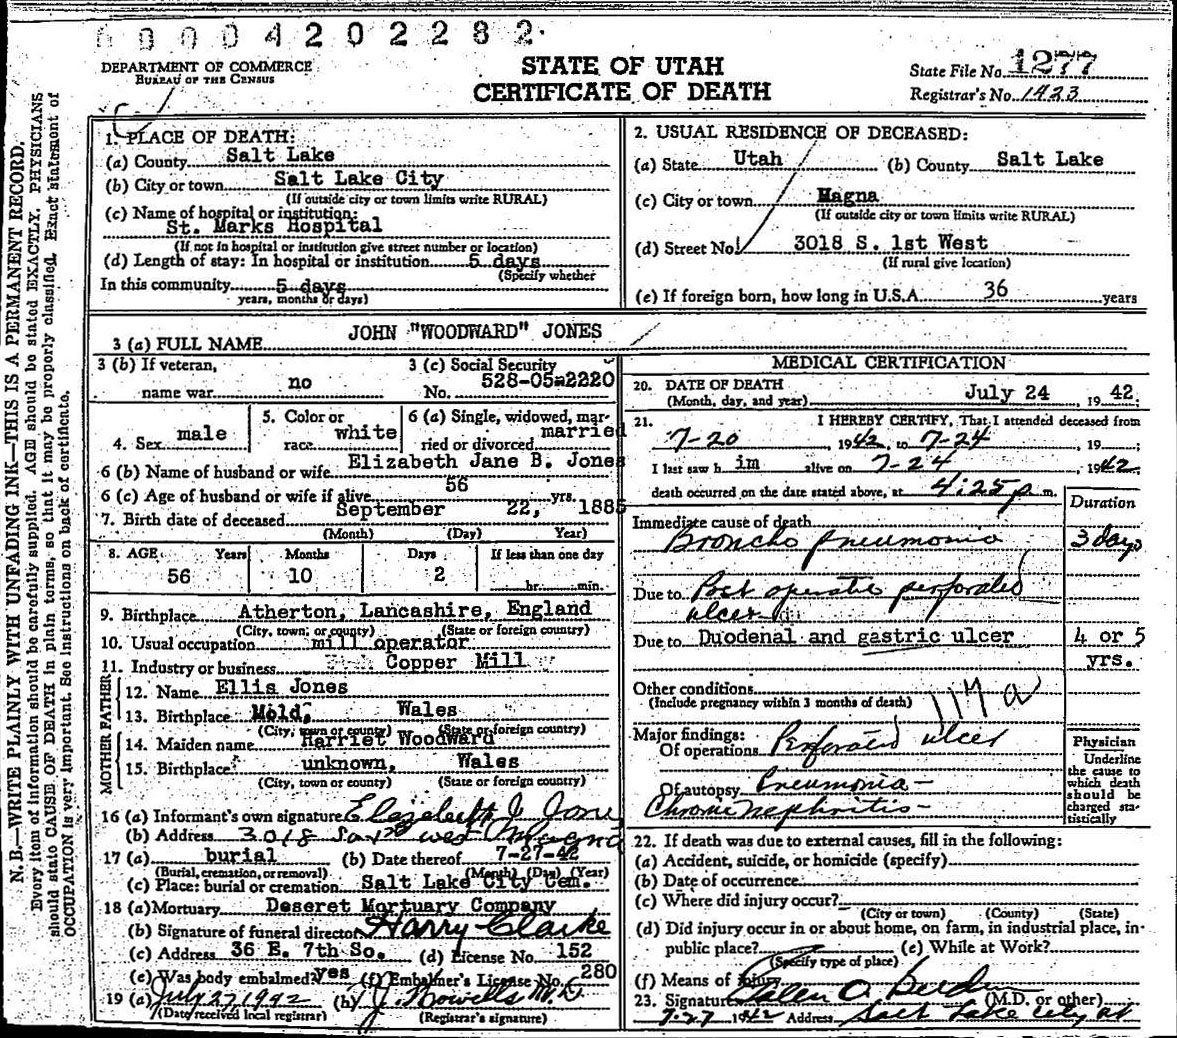 00004202282.
DEPARTMENT OF COMMERCE
BUREAU OF THE CENSUS
STATE OF UTAH
CERTIFICATE OF DEATH
State File No. 1277
Registrar's No. 1423
N. B.—WRITE PLAINLY WITH UNFADING INK—THIS IS A PERMANENT RECORD.
Every item of information should be carefully supplied. AGE should be stated EXACTLY. PHYSICIANS
should state CAUSE OF DEATH in plain terms, so that it may be properly classified. Exact statement of
OCCUPATION is very important. See instructions on back of certificate.
1. PLACE OF DEATH:
(a) County Salt Lake
(b) City or town Salt Lake City
(If outside city or town limits write RURAL)
(c) Name of hospital or institution:
St. Marks Hospital
(If not in hospital or institution give street number or location)
(d) Length of stay: In hospital or institution 5 days
(Specify whether
In this community 5 days
years, months or days)
2. USUAL RESIDENCE OF DECEASED:
(a) State Utah (b) County Salt Lake
(c) City or town Magna
(If outside city or town limits write RURAL)
(d) Street No. 3018 S. 1st West
(If rural give location)
(e) If foreign born, how long in U.S.A. 36 years
3 (a) FULL NAME JOHN "WOODWARD" JONES
3 (b) If veteran, name war no
3 (c) Social Security No. 528-05-2220
4. Sex male
5. Color or race white
6 (a) Single, widowed, married or divorced married
6 (b) Name of husband or wife Elizabeth Jane B. Jones
6 (c) Age of husband or wife if alive 56 yrs.
7. Birth date of deceased September 22, 1885
(Month) (Day) Year)
8. AGE Years Months Days If less than one day
56 10 2 hr. min.
9. Birthplace Atherton, Lancashire, England
(City, town, or county) (State or foreign country)
10. Usual occupation mill operator
11. Industry or business Copper Mill
FATHER
12. Name Ellis Jones
13. Birthplace Mold, Wales
(City, town or county) (State or foreign country)
MOTHER
14. Maiden name Harriet Woodward
15. Birthplace unknown, Wales
(City, town or county) (State or foreign country)
16 (a) Informant's own signature Elizabeth J. Jones
(b) Address 3018 So 1st West Magna
17 (a) burial (b) Date thereof 7-27-42
(Burial, cremation, or removal) (Month) (Day) (Year)
(c) Place: burial or cremation Salt Lake City Cem.
18 (a) Mortuary Deseret Mortuary Company
(b) Signature of funeral director Harry Clarke
(c) Address 36 E. 7th So. (d) License No. 152
(e) Was body embalmed? yes (f) Embalmer's License No. 280
19 (a) July 27 1942 (b) J. Howells M.D.
(Date received local registrar) (Registrar's signature)
MEDICAL CERTIFICATION
20. DATE OF DEATH
(Month, day, and year) July 24, 1942;
21. I HEREBY CERTIFY, That I attended deceased from
7-20, 1942, to 7-24, 19
I last saw him alive on 7-24, 1942,
death occurred on the date stated above, at 4:25 p m.
Duration
Immediate cause of death
Broncho pneumonia 3 days
Due to Post operative perforated
ulcer
Due to Duodenal and gastric ulcer 4 or 5
yrs.
Other conditions
(Include pregnancy within 3 months of death)
117 a
Major findings:
Of operations Perforated ulcer
Of autopsy Pneumonia -
Chronic Nephritis -
Physician
Underline
the cause to
which death
should be
charged sta-
tistically
22. If death was due to external causes, fill in the following:
(a) Accident, suicide, or homicide (specify)
(b) Date of occurrence
(c) Where did injury occur?
(City or town) (County) (State)
(d) Did injury occur in or about home, on farm, in industrial place, in
public place? (e) While at Work?
(Specify type of place)
(f) Means of injury
23. Signature (M.D. or other)
7-27 1942 Address Salt Lake City Ut